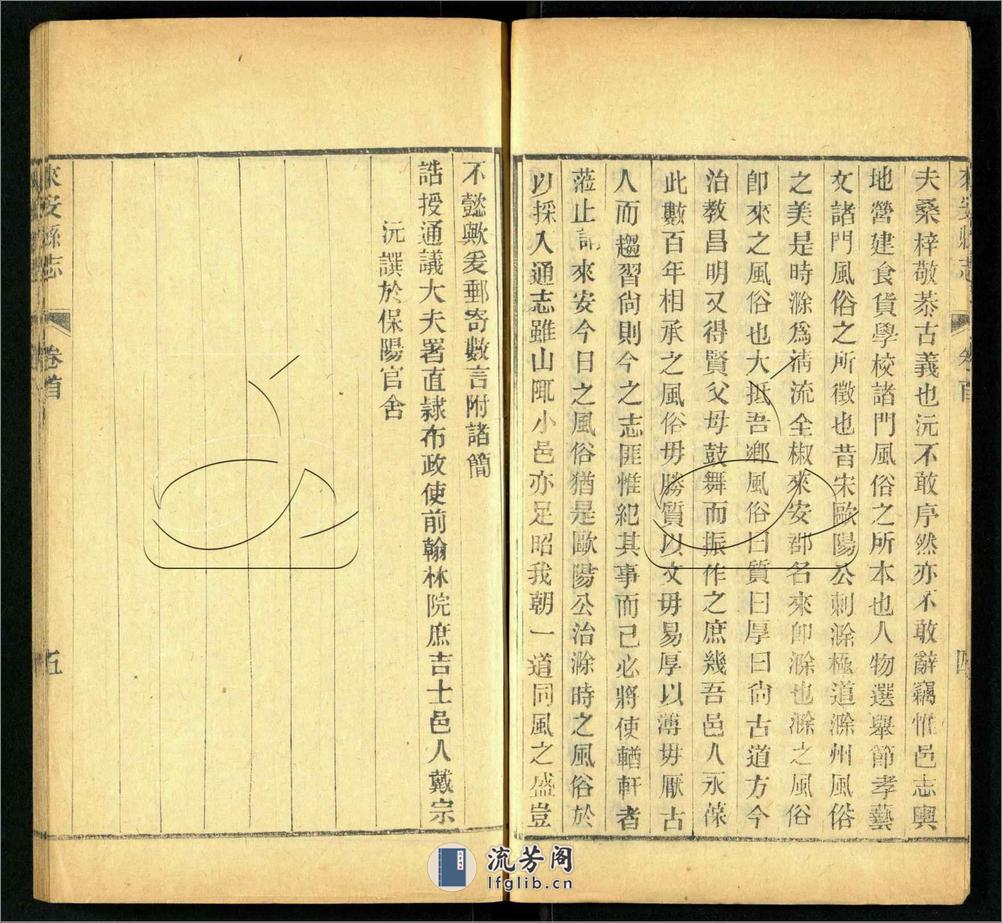 來安縣志
卷首
夫桑梓敬恭古義也沅不敢序然亦不敢辭竊惟邑志輿
地營建食貨學校諸門風俗之所本也人物選舉節孝藝
文諸門風俗之所徵也昔宋歐陽公刺滁極道滁州風俗
之美是時滁爲清流全椒來安郡名來卽滁也滁之風俗
卽來之風俗也大抵吾鄉風俗曰質曰厚曰尙古道方今
治教昌明又得賢父母鼓舞而振作之庶幾吾邑人永葆
此數百年相承之風俗毋勝質以文毋易厚以薄毋厭古
人而趨習尙則今之志匪惟紀其事而已必將使輶軒者
蒞止謂來安今日之風俗猶是歐陽公治滁時之風俗於
以採入通志雖山陬小邑亦足昭我朝一道同風之盛豈
不懿歟爰郵寄數言附諸簡
誥授通議大夫署直隸布政使前翰林院庶吉士邑人戴宗
沅譔於保陽官舍
來安縣志
卷首
五
流芳阁
lfglib.cn